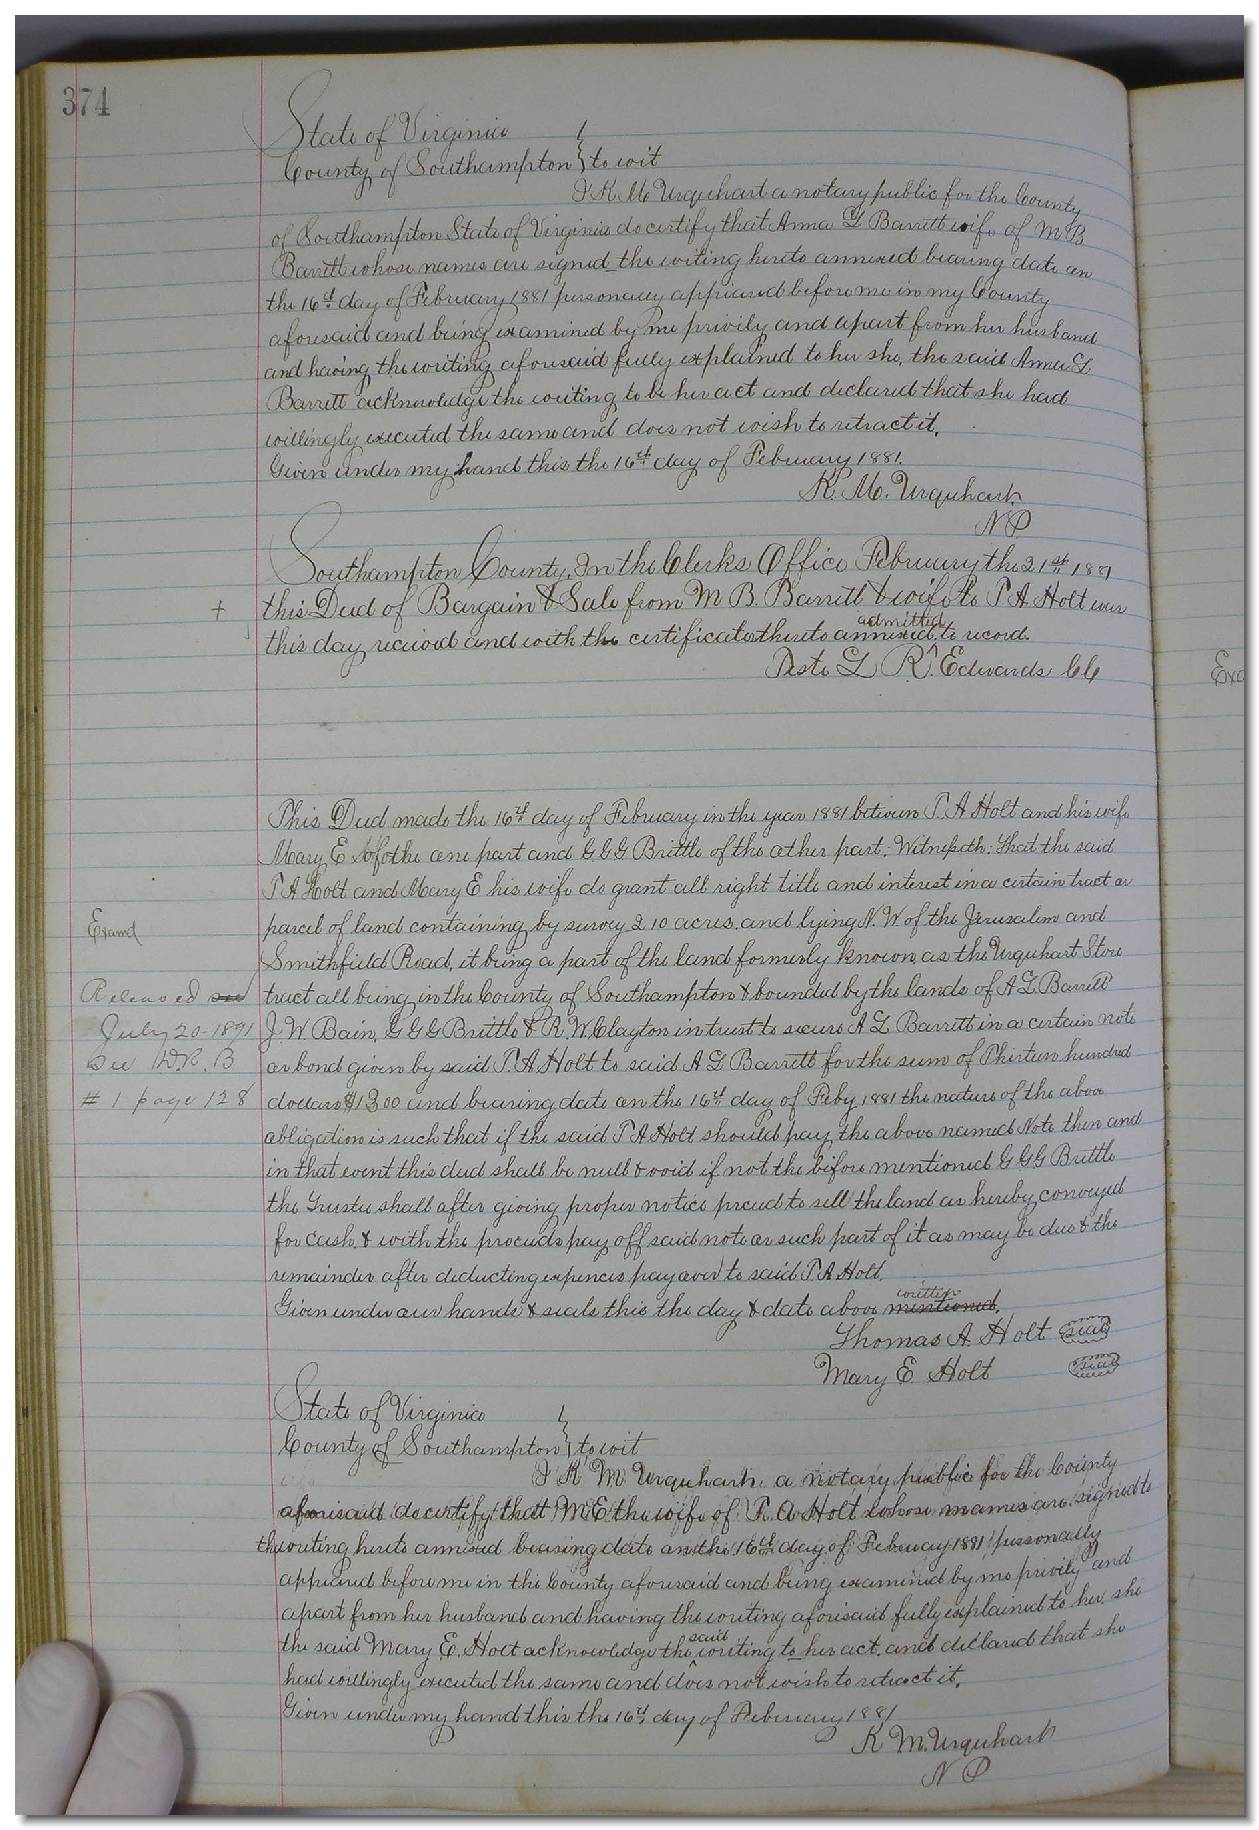 374
State of Virginia
County of Southampton } to wit
I K. M. Urquhart a notary public for the County
of Southampton State of Virginia do certify that Anna L Barrett wife of M B
Barrett whose names are signed the writing hereto annexed bearing date on
the 16th day of February 1881 personally appeared before me in my County
aforesaid and being examined by me privily and apart from her husband
and having the writing aforesaid fully explained to her she, the said Anna L
Barrett acknowledge the writing to be her act and declared that she had
willingly executed the same and does not wish to retract it.
Given under my hand this the 16th day of February 1881.
K. M. Urquhart
N P
Southampton County, In the Clerks Office February the 21st 1881
+ this Deed of Bargain & Sale from M B. Barrett & wife to T A Holt was
this day received and with the certificate thereto annexed, admitted to record.
Teste L R. Edwards CC
Exa
This Deed made the 16th day of February in the year 1881 between T. A Holt and his wife
Mary E of the one part and G G G Brittle of the other part: Witnesseth: That the said
T A Holt and Mary E his wife do grant all right title and interest in a certain tract or
Examd
parcel of land containing by survey 210 acres. and lying N. W of the Jerusalem and
Smithfield Road, it being a part of the land formerly known as the Urquhart Store
Released see
tract all being in the County of Southampton & bounded by the lands of A L Barrett
July 20-1891
J. W Bain, G G G Brittle & R. W. Clayton in trust to secure A L Barrett in a certain note
See D. R. B
or bond given by said T. A Holt to said A L Barrett for the sum of Thirteen hundred
# 1 page 128
dollars $1300 and bearing date on the 16th day of Feby 1881 the nature of the above
obligation is such that if the said T A Holt should pay the above named Note then and
in that event this deed shall be null & void if not the before mentioned G G G Brittle
the Trustee shall after giving proper notice proceed to sell the land as hereby conveyed
for cash, & with the proceeds pay off said note or such part of it as may be due & the
remainder after deducting expences pay over to said T. A Holt.
Given under our hands & seals this the day & date above mentioned. written
Thomas A. Holt seal
Mary E. Holt seal
State of Virginia
County of Southampton } to wit
I K M Urquhart a notary public for the County
aforesaid do certify that M E the wife of T. A Holt whose names are signed to
the writing hereto annexed bearing date on the 16th day of February 1881 personally
appeared before me in the County aforesaid and being examined by me privily and
apart from her husband and having the writing aforesaid fully explained to her, she
the said Mary E. Holt acknowledge the said writing to her act. and declared that she
had willingly executed the same and does not wish to retract it.
Given under my hand this the 16th day of February 1881
K M. Urquhart
N P